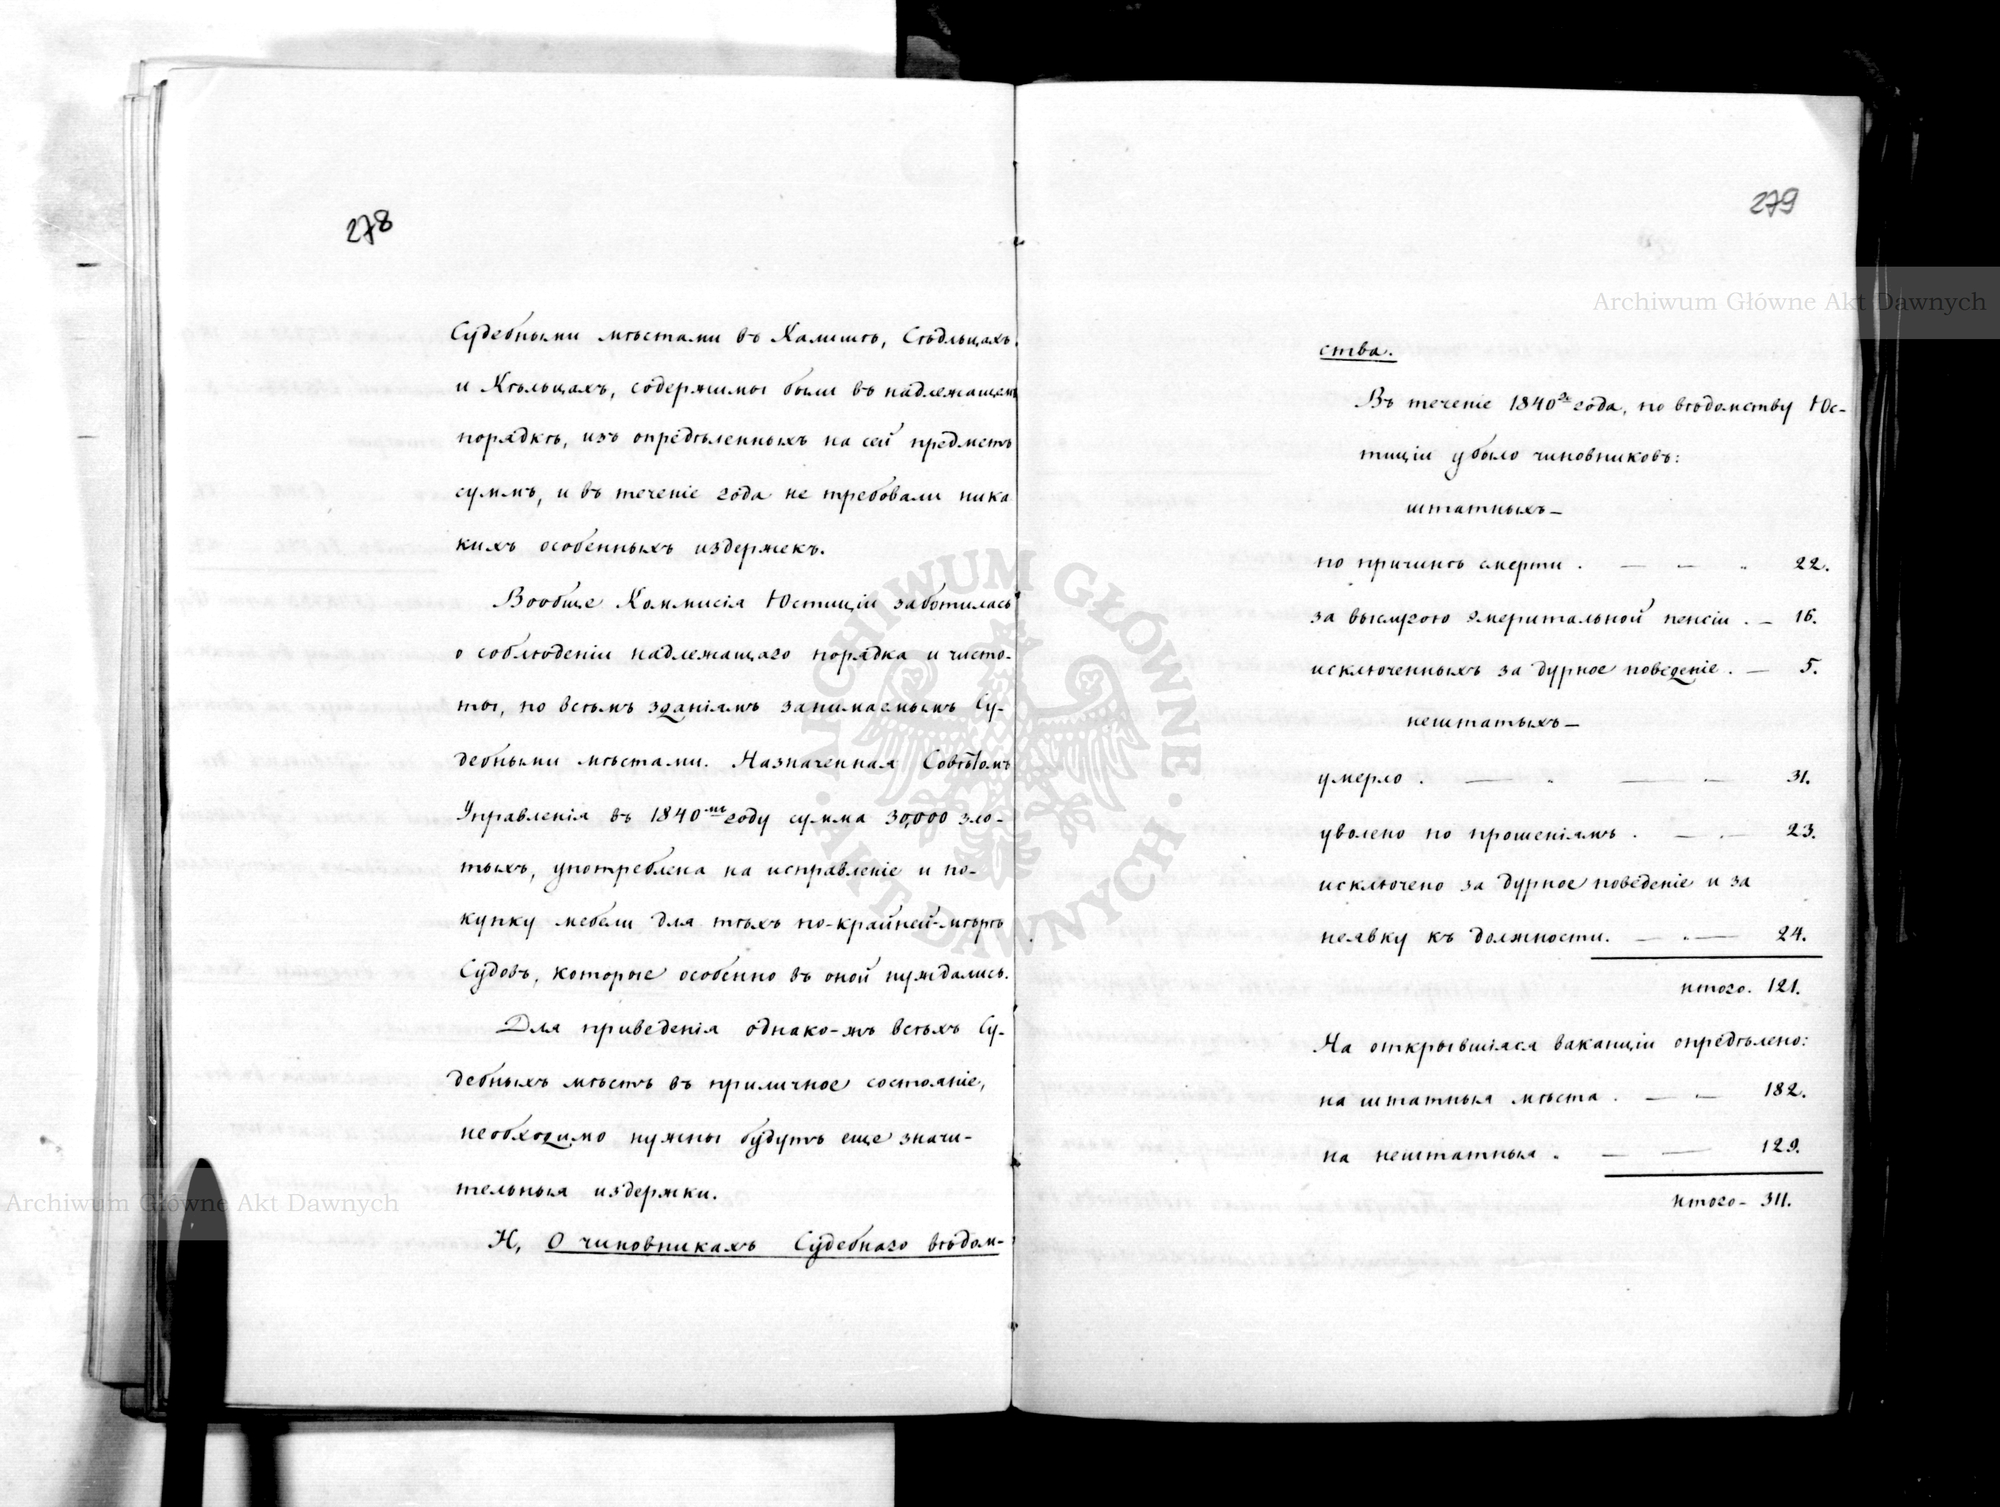 278
Судебными мѣстами въ Калишѣ, Сѣдльцахъ,
и Кѣльцахъ, содержимы были въ надлежащемъ
порядкѣ, изъ опредѣленныхъ на сей предметъ
суммъ, и въ теченіе года не требовали ника
кихъ особенныхъ издержекъ.
Вообще Коммисія Юстиціи заботилась
о соблюденіи надлежащаго порядка и чисто-
ты, по всѣмъ зданіямъ занимаемымъ Су-
дебными мѣстами. Назначенная Совѣтомъ
Управленія въ 1840мъ году сумма 30,000 зло-
тыхъ, употреблена на исправленіе и по-
купку мебели для тѣхъ по-крайней-мѣрѣ
Судовъ, которые особенно въ оной нуждались.
Для приведенія однако-жъ всѣхъ Су-
дебныхъ мѣстъ въ приличное состояніе,
необходимо нужны будутъ еще значи-
тельныя издержки.
Н, О чиновникахъ Судебнаго вѣдом-
279
ства.
Въ теченіе 1840го года, по вѣдомству Юс-
тиціи убыло чиновниковъ:
штатныхъ—
по причинѣ смерти . — — „ 22.
за выслугою эмеритальной пенсіи . — 16.
исключенныхъ за дурное поведеніе . — 5.
нештатыхъ—
умерло . — „ — — 31.
уволено по прошеніямъ . — . — 23.
исключено за дурное поведеніе и за
неявку къ должности. — „ — 24.
итого. 121.
На открывшіяся вакансіи опредѣлено:
на штатныя мѣста . — „ — 182.
на нештатныя . — — 129.
итого- 311.
Archiwum Główne Akt Dawnych
Archiwum Główne Akt Dawnych
ARCHIWUM GŁÓWNE
· AKT DAWNYCH ·